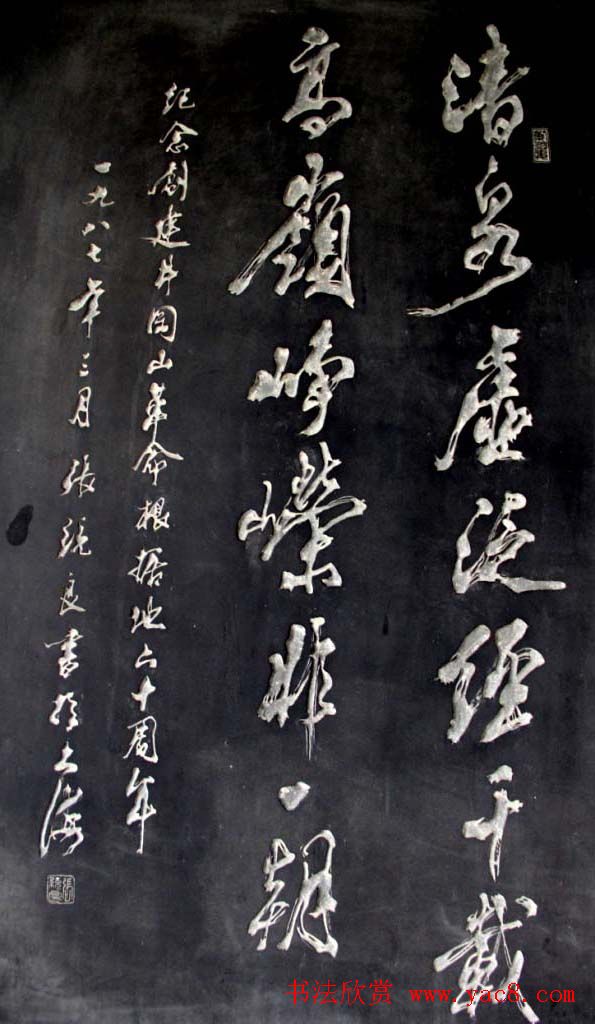 清泉虚經千載
高嶺峥嶸非一朝
纪念創建井岡山革命根据地六十周年
一九八七年三月 张良書於上海
书法欣赏 www.yac8.com